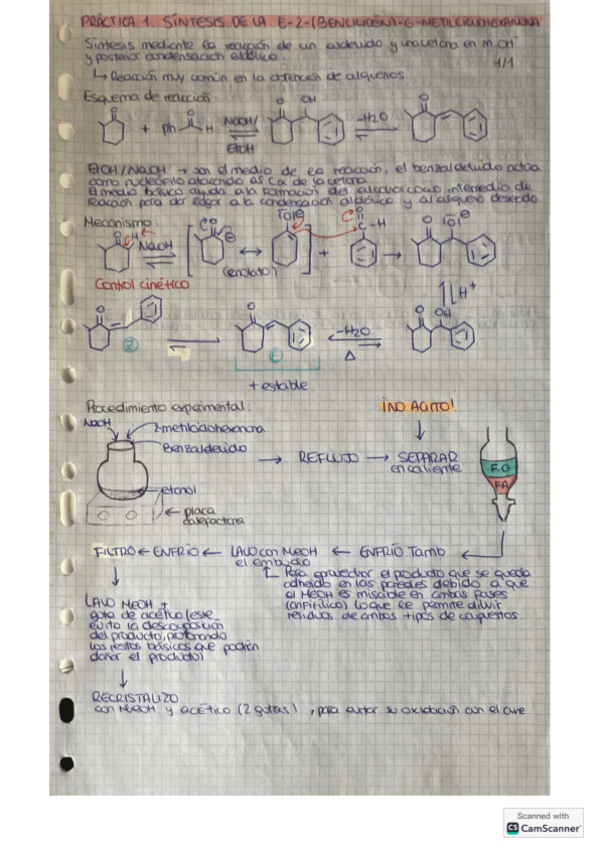 PRÁCTICA 1. SÍNTESIS DE LA E-2-(BENCILIDEN)-6-METILCICLOHEXANONA
Síntesis mediante la reacción de un aldehído y una cetona en
y posterior condensación aldólica.
1/1
↳ Reacción muy común en la obtención de alquenos
Esquema de reacción:
O
O OH
O
+ Ph H
NaOH/
EtOH
-H2O
EtOH/NaOH → son el medio de la reacción, el benzaldehído actúa
como nucleófilo atacando al Cα de la cetona.
El medio básico ayuda a la formación del alcohol como intermedio de
reacción para dar lugar a la condensación aldólica y al alqueno deseado.
Mecanismo:
NaOH
(enolato)
+
C-H
Control cinético
H+
O
O
O OH
-H2O
Δ
Z
E
+ estable
Procedimiento experimental:
¡NO AGITO!
NaOH
2-metilciclohexanona
Benzaldehído
→ REFLUJO → SEPARAR
en caliente
F.O
FA
etanol
← placa
calefactora
FILTRO ← ENFRÍO ← LAVO con MeOH ← ENFRÍO Tamb
el embudo
↳ Para aprovechar el producto que se queda
adherido en las paredes debido a que
el MeOH es miscible en ambas fases
(anfifílico) lo que le permite diluir
residuos de ambos tipos de compuestos
LAVO MeOH +
gota de acético (este
evita la descomposición
del producto,
los restos básicos que podrían
dañar el producto)
RECRISTALIZO
con MeOH y acético (2 gotas), para evitar su oxidación con el aire
Scanned with
CS CamScanner